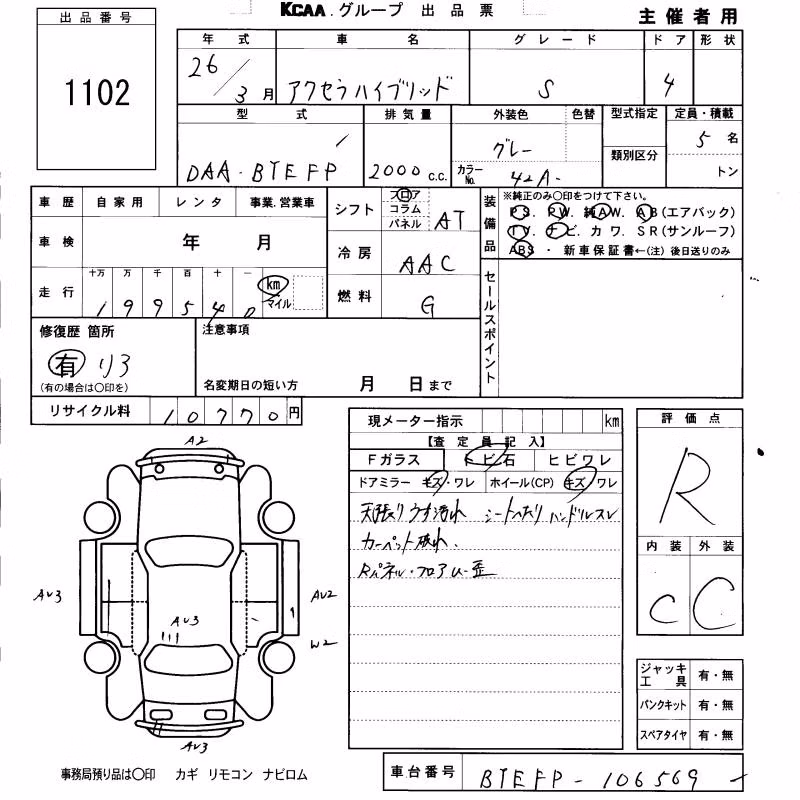 KCAA.グループ 出品票
主催者用
出品番号
1102
年式 車名 グレード ドア 形状
26/3月 アクセラハイブリッド S 4
型式 排気量 外装色 色替 型式指定 定員・積載
DAA-BYEFP 2000c.c. グレー カラーNo. 42A- 類別区分 5名
トン
車歴 自家用 レンタ 事業.営業車
シフト フロア コラム パネル AT
装備品 ※純正のみ〇印をつけて下さい。
PS. PW. 純AW. AB(エアバック)
TV. ナビ. カワ. SR(サンルーフ)
ABS ・ 新車保証書←(注) 後日送りのみ
車検 年 月
冷房 AAC
走行 十万 万 千 百 十 一
199540 km マイル
燃料 G
セールスポイント
修復歴 箇所
有 リ3
(有の場合は〇印を)
注意事項
名変期日の短い方 月 日まで
リサイクル料 10770円
現メーター指示 km
【査定員記入】
Fガラス トビ石 ヒビワレ
ドアミラー キズ・ワレ ホイール(CP) キズ/ワレ
天張りうす汚れ シートヘたり ハンドルスレ
カーペット破れ.
Rパネル・フロアU-歪
評価点
R
内装 外装
C C
A2
AU3
AU3
AU2
W2
AU3
ジャッキ工具 有・無
パンクキット 有・無
スペアタイヤ 有・無
事務局預り品は〇印 カギ リモコン ナビロム
車台番号 BYEFP-106569